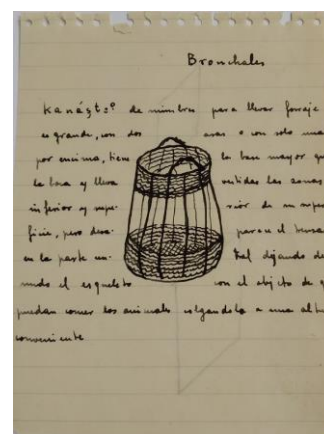 Bronchales
de mimbre para llevar forraje
es grande, con dos asas o con solo una
por encima, tiene la base mayor que
la boca y lleva vestidas las zonas
inferior y supe- rior de un
ficie, pero desa- parece el
en la parte cen- tral dejando des
nudo el esqueleto con el objeto de q
puedan comer los animales colgandola a una
conveniente